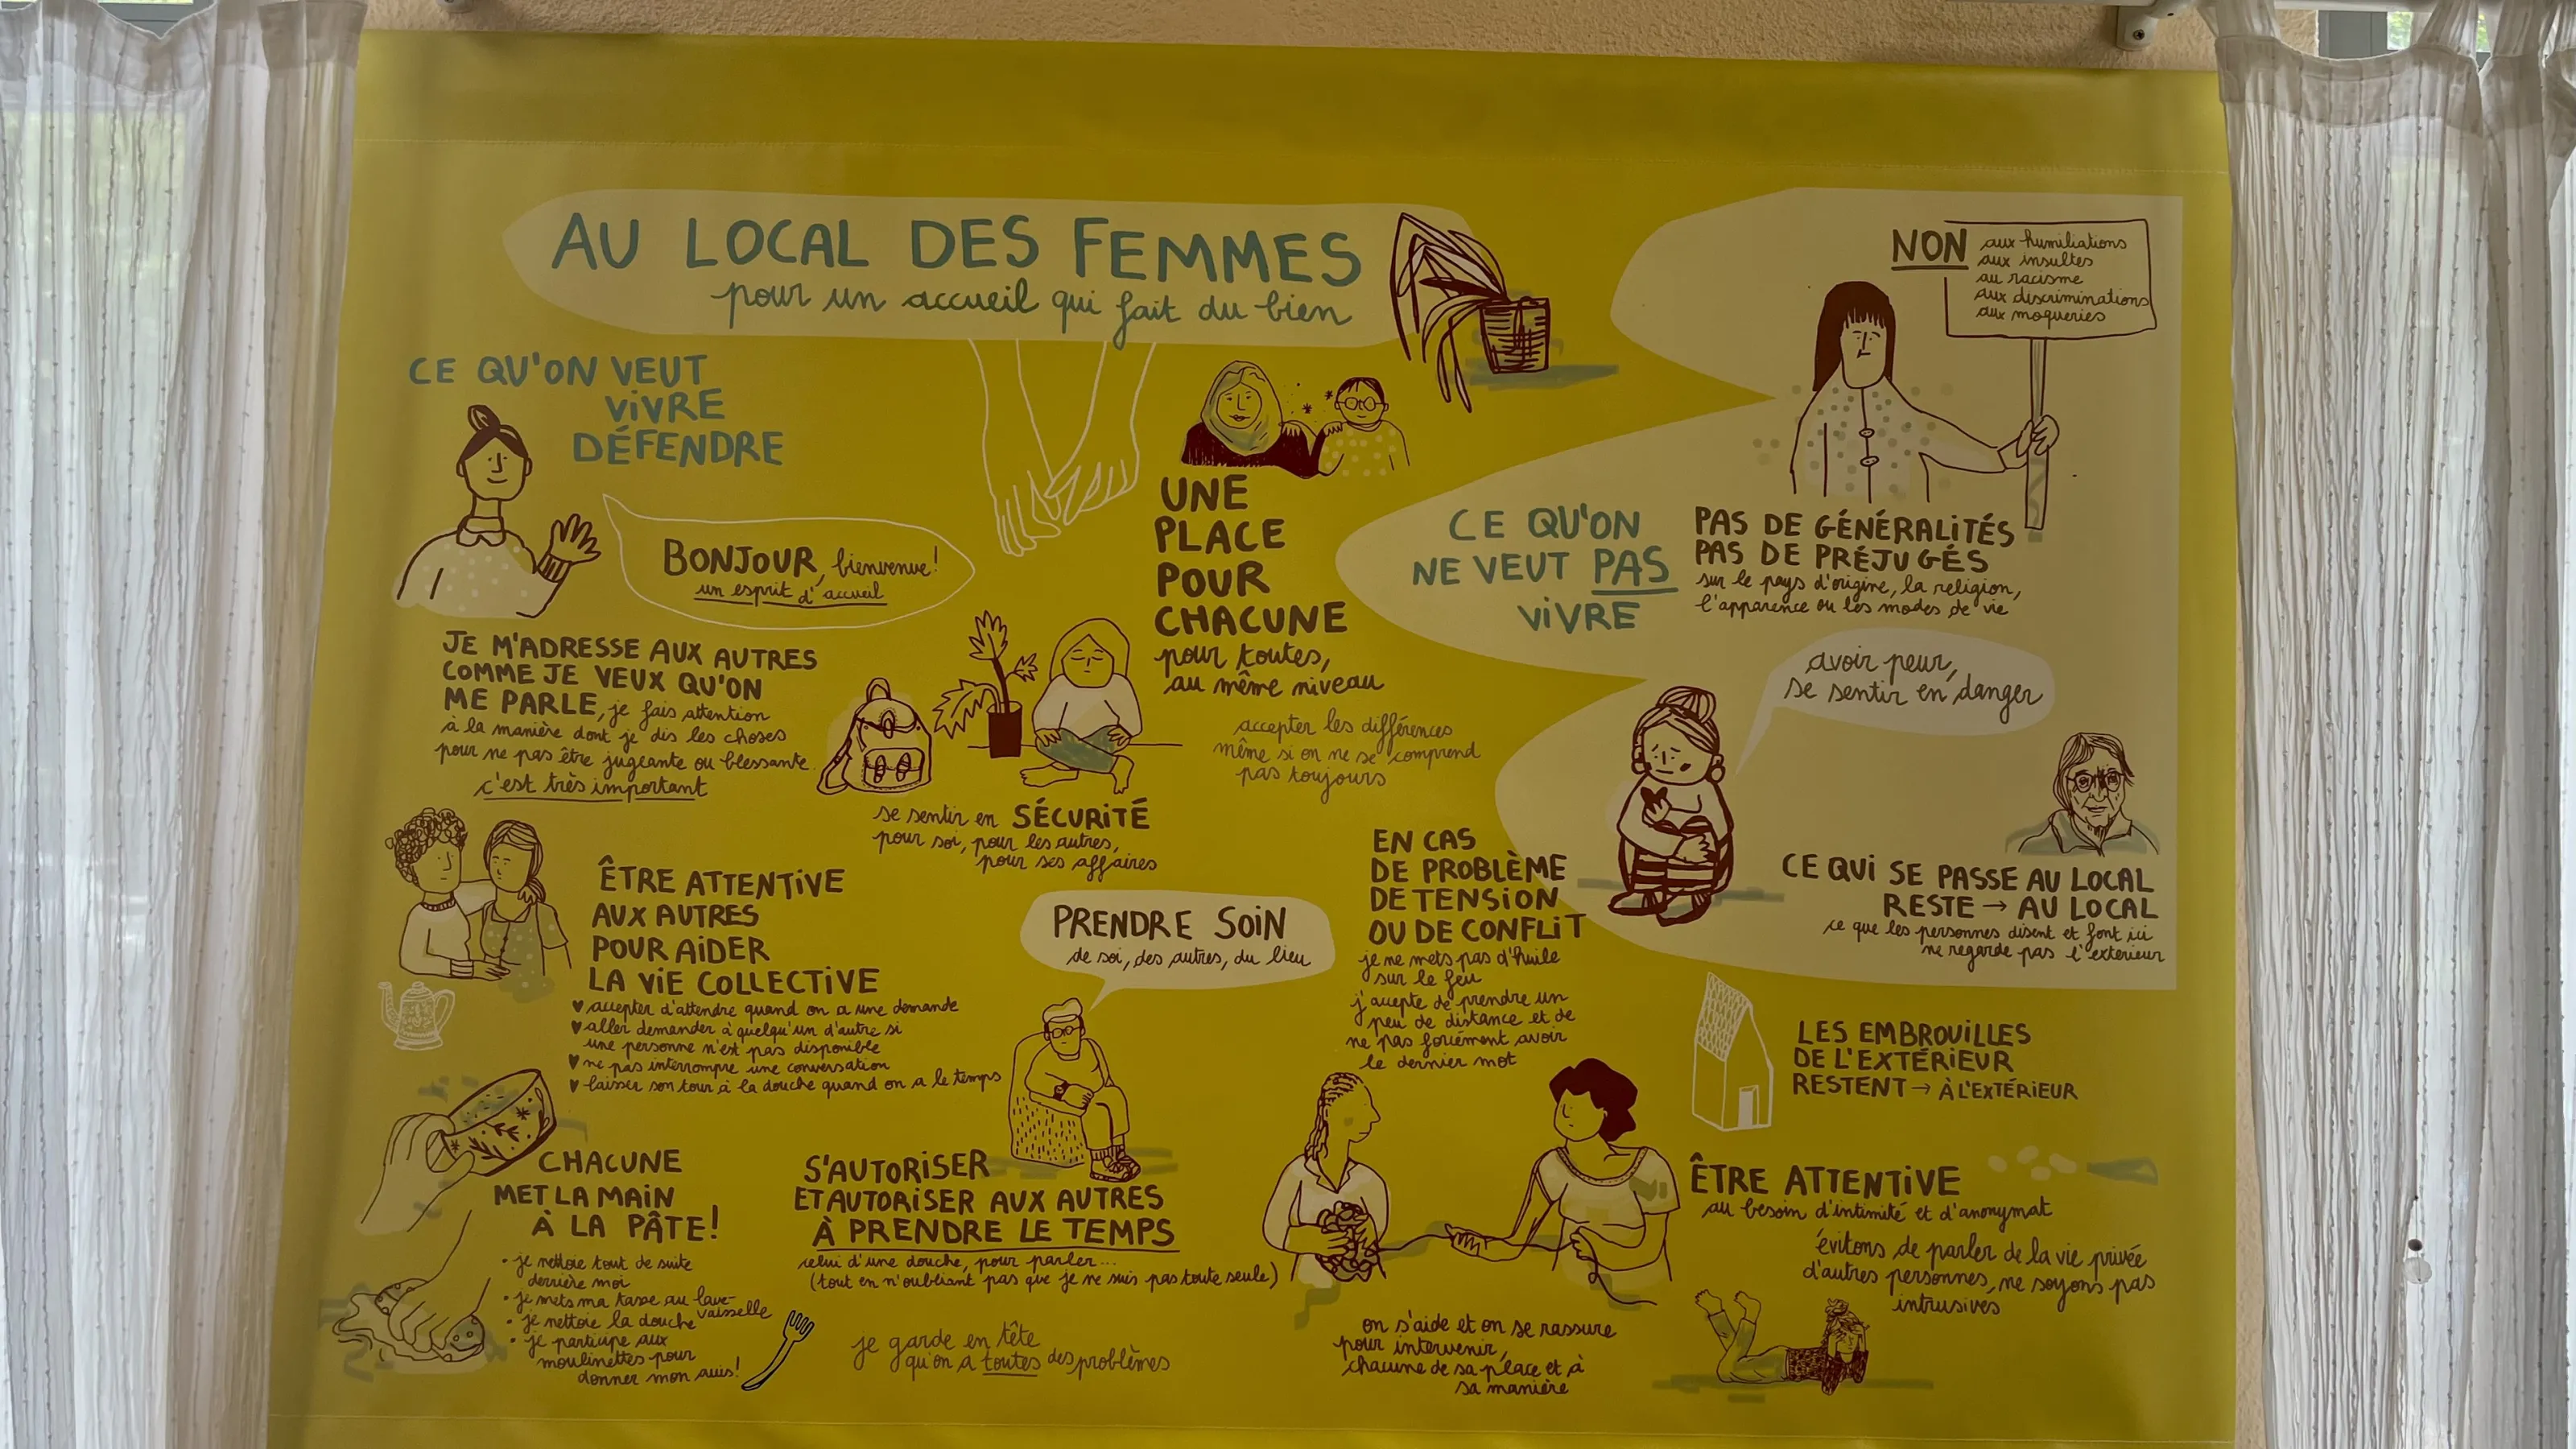 AU LOCAL DES FEMMES
pour un accueil qui fait du bien
CE QU'ON VEUT
VIVRE
DÉFENDRE
BONJOUR, bienvenue!
un esprit d'accueil
JE M'ADRESSE AUX AUTRES
COMME JE VEUX QU'ON
ME PARLE, je fais attention
à la manière dont je dis les choses
pour ne pas être jugeante ou blessante
c'est très important
se sentir en SÉCURITÉ
pour soi, pour les autres,
pour ses affaires
UNE
PLACE
POUR
CHACUNE
pour toutes,
au même niveau
accepter les différences
même si on ne se comprend
pas toujours
ÊTRE ATTENTIVE
AUX AUTRES
POUR AIDER
LA VIE COLLECTIVE
♥ accepter d'attendre quand on a une demande
♥ aller demander à quelqu'un d'autre si
une personne n'est pas disponible
♥ ne pas interrompre une conversation
♥ laisser son tour à la douche quand on a le temps
PRENDRE SOIN
de soi, des autres, du lieu
CHACUNE
MET LA MAIN
À LA PÂTE!
• je nettoie tout de suite
derrière moi
• je mets ma tasse au lave-
vaisselle
• je nettoie la douche
• je participe aux
moulinettes pour
donner mon avis!
S'AUTORISER
ET AUTORISER AUX AUTRES
À PRENDRE LE TEMPS
celui d'une douche, pour parler...
(tout en n'oubliant pas que je ne suis pas toute seule)
je garde en tête
qu'on a toutes des problèmes
EN CAS
DE PROBLÈME
DE TENSION
OU DE CONFLIT
je ne mets pas d'huile
sur le feu
j'accepte de prendre un
peu de distance et de
ne pas forcément avoir
le dernier mot
on s'aide et on se rassure
pour intervenir,
chacune de sa place et à
sa manière
CE QU'ON
NE VEUT PAS
VIVRE
NON aux humiliations
aux insultes
au racisme
aux discriminations
aux moqueries
PAS DE GÉNÉRALITÉS
PAS DE PRÉJUGÉS
sur le pays d'origine, la religion,
l'apparence ou les modes de vie
avoir peur,
se sentir en danger
CE QUI SE PASSE AU LOCAL
RESTE → AU LOCAL
ce que les personnes disent et font ici
ne regarde pas l'extérieur
LES EMBROUILLES
DE L'EXTÉRIEUR
RESTENT → À L'EXTÉRIEUR
ÊTRE ATTENTIVE
au besoin d'intimité et d'anonymat
évitons de parler de la vie privée
d'autres personnes, ne soyons pas
intrusives